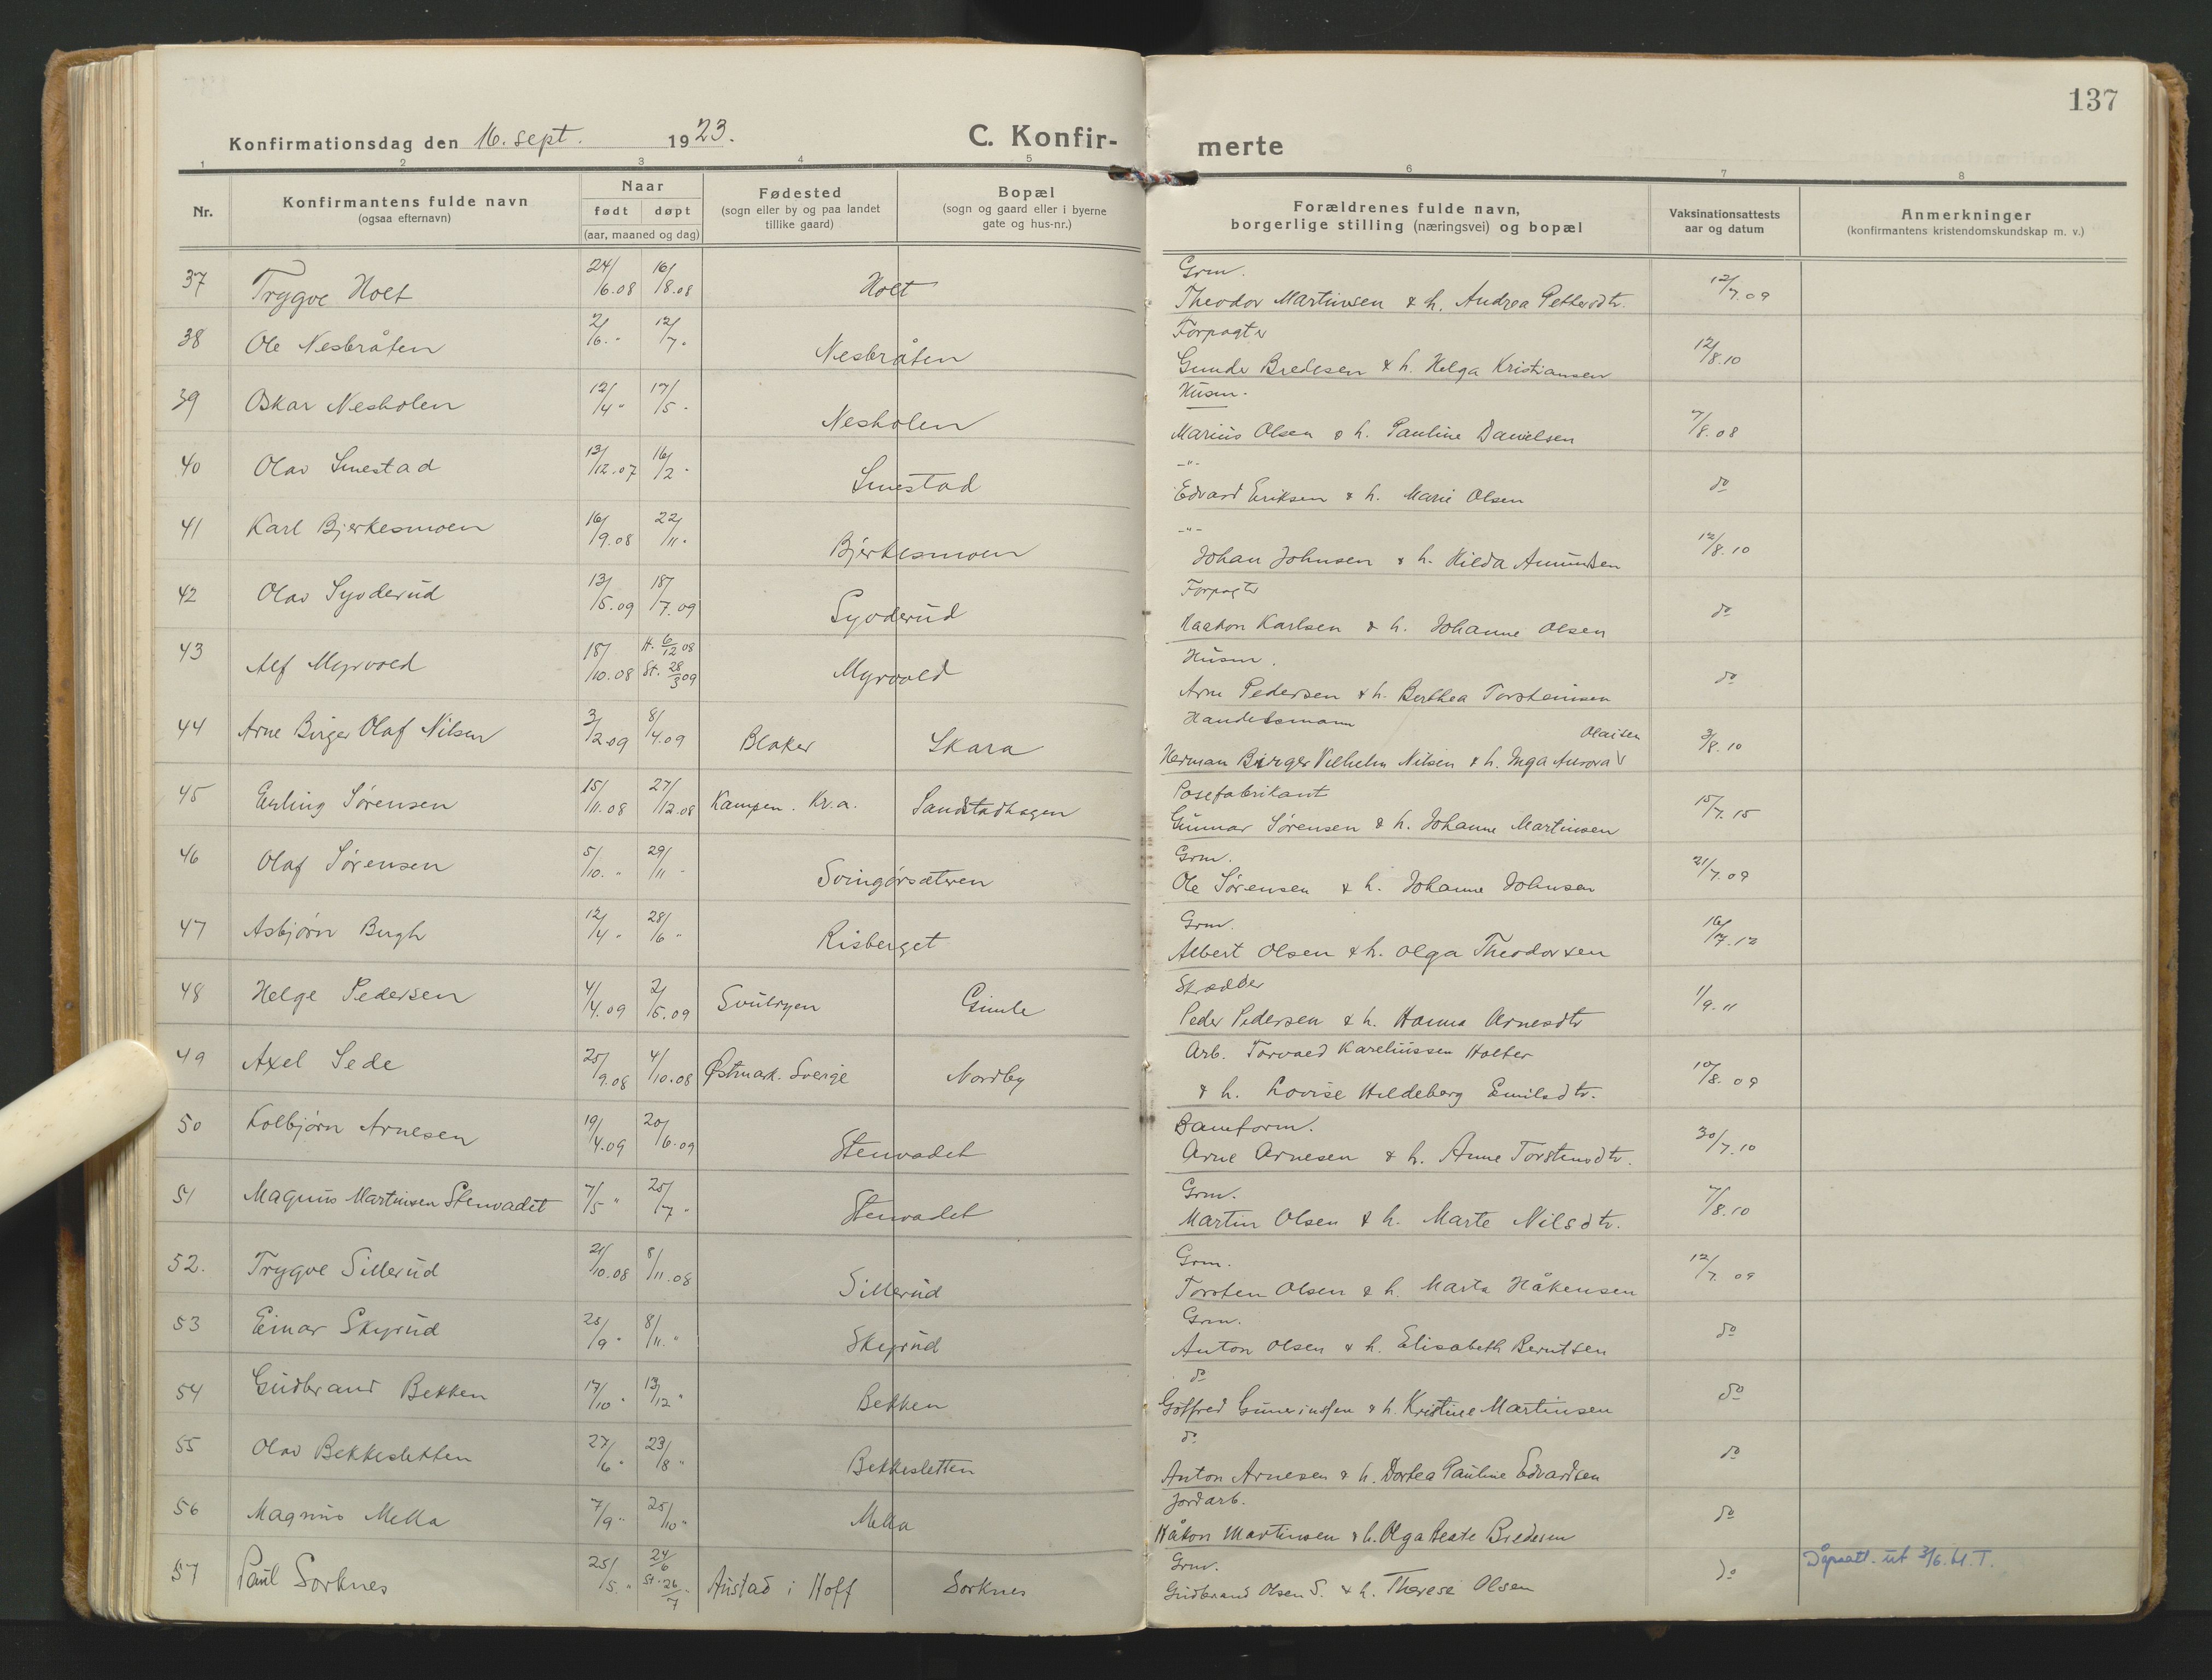 137
Konfirmationsdag den 16. sept. 1923.
C. Konfir-
merte
1 2 3 4 5 6 7 8
Nr.
Konfirmantens fulde navn
(ogsaa efternavn)
Naar
født døpt
(aar, maaned og dag)
Fødested
(sogn eller by og paa landet
tillike gaard)
Bopæl
(sogn og gaard eller i byerne
gate og hus-nr.)
Forældrenes fulde navn,
borgerlige stilling (næringsvei) og bopæl
Vaksinationsattests
aar og datum
Anmerkninger
(konfirmantens kristendomskundskap m. v.)
37 Trygve Holt 24/6.08 16/8.08 Holt
Grm.
Theodor Martinsen & h. Andrea Pettersdtr. 12/7.09
38 Ole Nesbråten 2/6. " 12/7. Nesbråten
Forpagter
Gunder Bredesen & h. Helga Kristiansen 12/8.10
39 Oskar Nesholen 12/4 " 17/5 " Nesholen
Husm.
Marius Olsen & h. Pauline Danielsen 7/8.08
40 Olav Smestad 13/12.07 16/2 " Smestad
-"-
Edvard Eriksen & h. Marie Olsen do
41 Karl Bjerkesmoen 16/9.08 22/11. Bjerkesmoen
-"-
Johan Johnsen & h. Hilda Amundsen 12/8.10
42 Olav Syverud 13/5.09 18/7.09
Forpagter
Haakon Karlsen & h. Johanne Olsen do
43 Alf Myrvold 18/10.08 H. 6/12 08 St. 28/3 09 Myrvold
Husm.
Arne Pedersen & h. Berthea Torsteinsen do
44 Arne Birger Olaf Nilsen 3/2.09 8/4.09 Blaker Skara
Handelsmann
Olaisen
Herman Birger Vilhelm Nilsen & h. Inga Aurora 3/8.10
45 Erling Sørensen 15/11.08 27/12.08 Kampen. Kr.a. Sandstadhagen
Posefabrikant
Gunnar Sørensen & h. Johanne Martinsen 15/7.15
46 Olaf Sørensen 5/10. " 29/11 " Svingørsætren
Grm.
Ole Sørensen & h. Johanne Johnsen 21/7.09
47 Asbjørn Bugh 12/4 " 28/6 " Risberget
Grm.
Albert Olsen & h. Olga Theodorsen 16/7.12
48 Helge Pedersen 4/4.09 2/5.09 Svulryen Gimle
Skrædder
Peder Pedersen & h. Hanna Arnesdtr 1/9.11
49 Axel Sede 25/9.08 4/10.08 Østmark. Sverige Nordby
Arb. Torvald Kareliussen Holter
& h. Lovise Hildeberg Emilsdtr. 10/8.09
50 Kolbjørn Arnesen 19/4.09 20/6.09 Stenvadet
Baneform.
Arne Arnesen & h. Anne Torstensdtr. 30/7.10
51 Magnus Martinsen Stenvadet 7/5 " 25/7 " Stenvadet
Grm.
Martin Olsen & h. Marte Nilsdtr. 7/8.10
52. Trygve Sillerud 21/10.08 8/11.08 Sillerud
Grm.
Torsten Olsen & h. Marta Håkensen 12/7.09
53 Einar Skyrud 28/9 " 8/11. " Skyrud
Grm.
Anton Olsen & h. Elisabeth Berntsen do
54 Gudbrand Bekken 17/10 " 13/12 " Bekken
do
Gotfred Guneriussen & h. Kristine Martinsen do
55 Olav Bekkesletten 27/6 " 23/8 " Bekkesletten
do
Anton Arnesen & h. Dortea Pauline Edvardsen do
56 Magnus Mella 7/9 " 25/10 " Mella
Jordarb.
Håkon Martinsen & h. Olga Beate Bredesen do
57 Paul Sorknes 25/5. " 24/6 St. 26/7 " Austad i Hoff Sorknes
Grm.
Gudbrand Olsen S. & h. Therese Olsen do
Dåpsatt. ut 3/6.